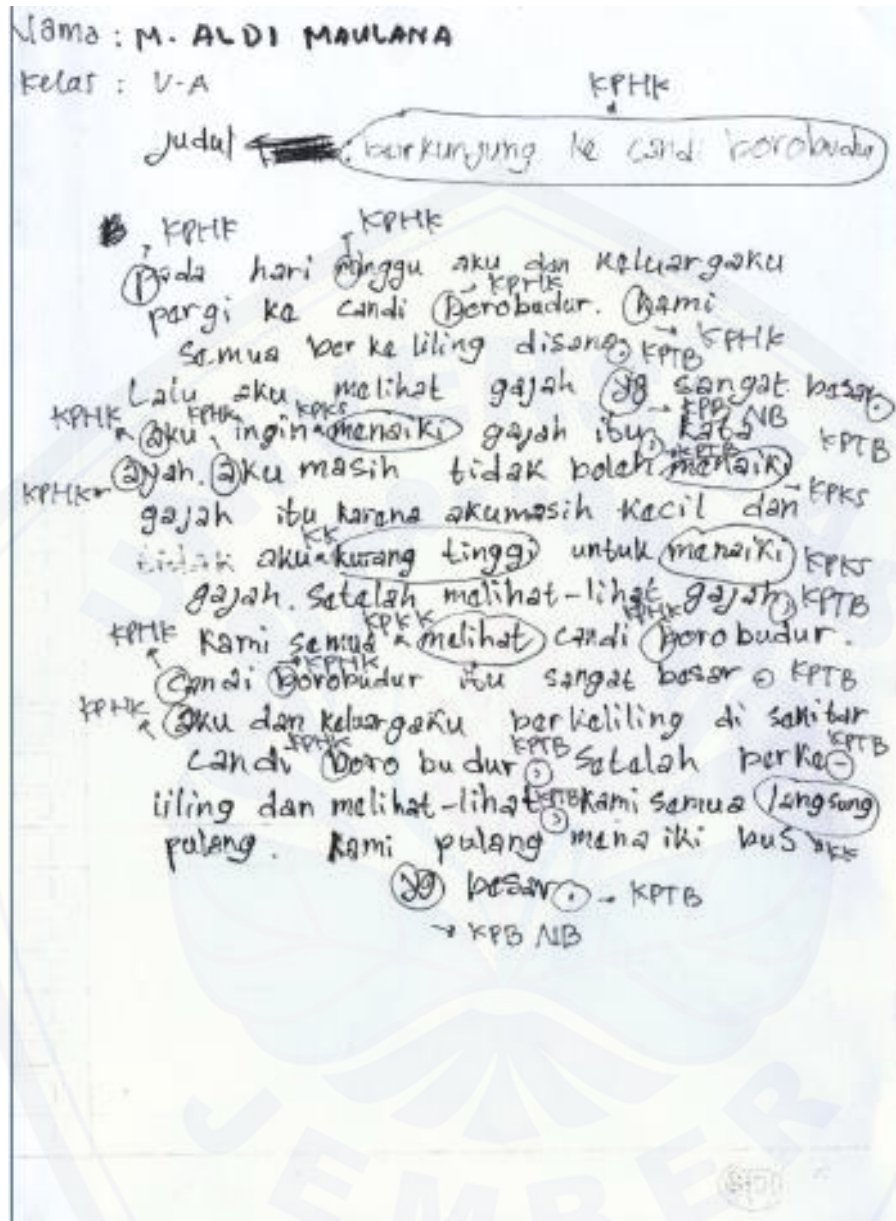 Nama : M. ALDI MAULANA
Kelas : V-A
KPHK
judul berkunjung ke candi borobudur
KPHK KPHK
pada hari minggu aku dan keluargaku
KPHK
pergi ke candi borobudur. kami
KPHK
semua ber keliling disana. KPTB
Lalu aku melihat gajah yg sangat besar.
KPHK KPHK KPKS KPB NB KPTB
aku ingin menaiki gajah itu, kata
KPTB
KPHK ayah. aku masih tidak boleh menaiki
KPKS
gajah itu karena akumasih kecil dan
KK
tidak aku kurang tinggi untuk menaiki KPKS
gajah. setelah melihat-lihat gajah, KPTB
KPHK KPKK KPHK
kami semua melihat candi boro budur.
KPHK
candi borobudur itu sangat besar. KPTB
KPHK aku dan keluargaku berkeliling di sekitar
KPHK KPTB KPTB
candi boro budur, setelah berke-
liling dan melihat-lihat, KPTB kami semua langsung
pulang. kami pulang mena iki bus KK
yg besar. KPTB
KPB NB
JEMBER